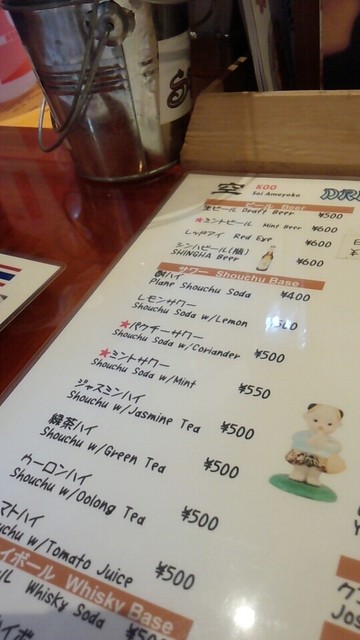 空 KOO
Soi Ameyoko
DR
ビール Beer
生ビール Draft Beer ¥500
★ミントビール Mint Beer ¥600
レッドアイ Red Eye ¥600
シンハビール(瓶)
SINGHA Beer ¥600
サワー Shouchu Base
酎ハイ
Plane Shouchu Soda ¥400
レモンサワー
Shouchu Soda w/Lemon ¥500
★パクチーサワー
Shouchu Soda w/Coriander ¥500
★ミントサワー
Shouchu Soda w/Mint ¥550
ジャスミンハイ
Shouchu w/Jasmine Tea ¥500
緑茶ハイ
Shouchu w/Green Tea ¥500
ウーロンハイ
Shouchu w/Oolong Tea ¥500
マトハイ
w/Tomato Juice ¥500
イボール Whisky Base
Whisky Soda ¥500